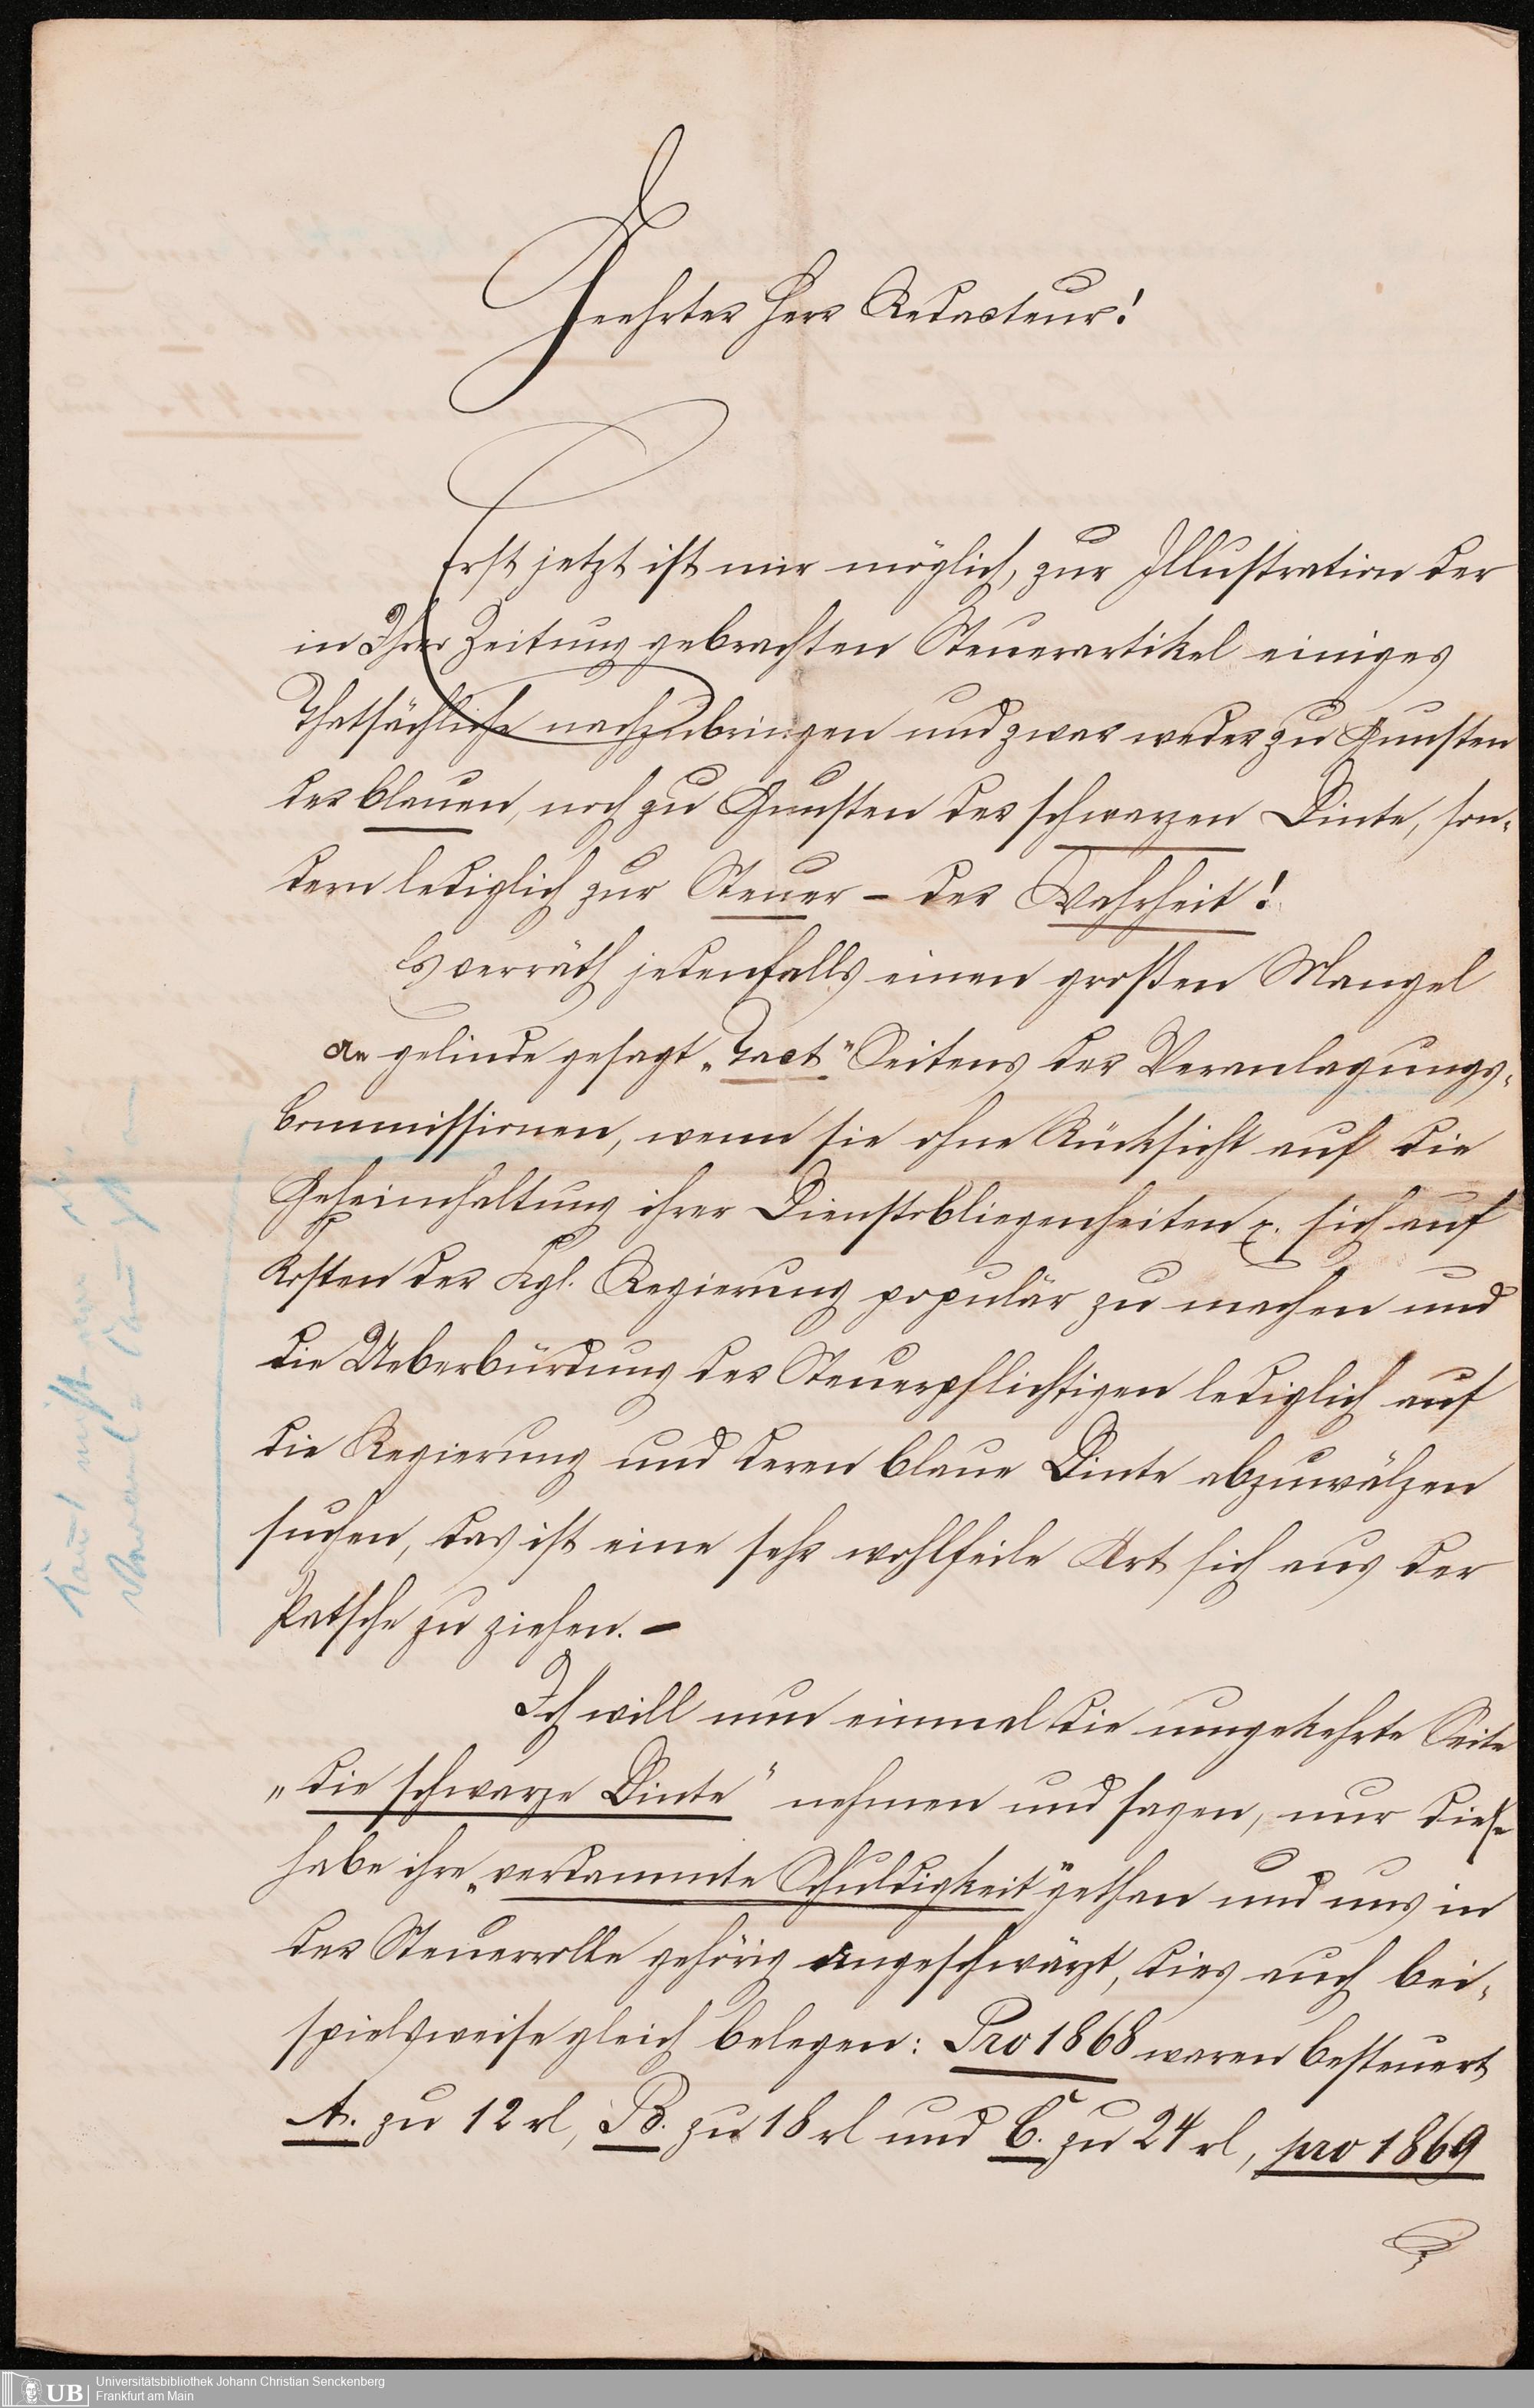 Geehrter Herr Redacteur!
Erst jetzt ist mir möglich, zur Illustration der
in Ihrer Zeitung gebrachten Steuerartikel einiges
Thatsächliche nachzubringen und zwar weder zu Gunsten
der blauen, noch zu Gunsten der schwarzen Dinte, son-
dern lediglich zur Steuer – der Wahrheit!
Es verräth jedenfalls einen großen Mangel
an gelinde gesagt „Tact" Seitens der Veranlagungs-
Commissionen, wenn sie ohne Rücksicht auf die
Geheimhaltung ihrer Dienstobliegenheiten x. sich auf
Kosten der Kgl. Regierung populär zu machen und
die Ueberbürdung der Steuerpflichtigen lediglich auf
die Regierung und deren blaue Dinte abzuwälzen
suchen, das ist eine sehr wohlfeile Art sich aus der
Patsche zu ziehen. –
Ich will nun einmal die umgekehrte Seite
„die schwarze Dinte" nehmen und sagen, nur diese
habe ihre „verdammte Schuldigkeit" gethan und uns in
der Steuerrolle gehörig angeschwärzt, dies auch bei-
spielsweise gleich belegen: Pro 1868 waren besteuert
A. zu 12 rl, B. zu 18 rl und C. zu 24 rl, pro 1869
UB
Universitätsbibliothek Johann Christian Senckenberg
Frankfurt am Main